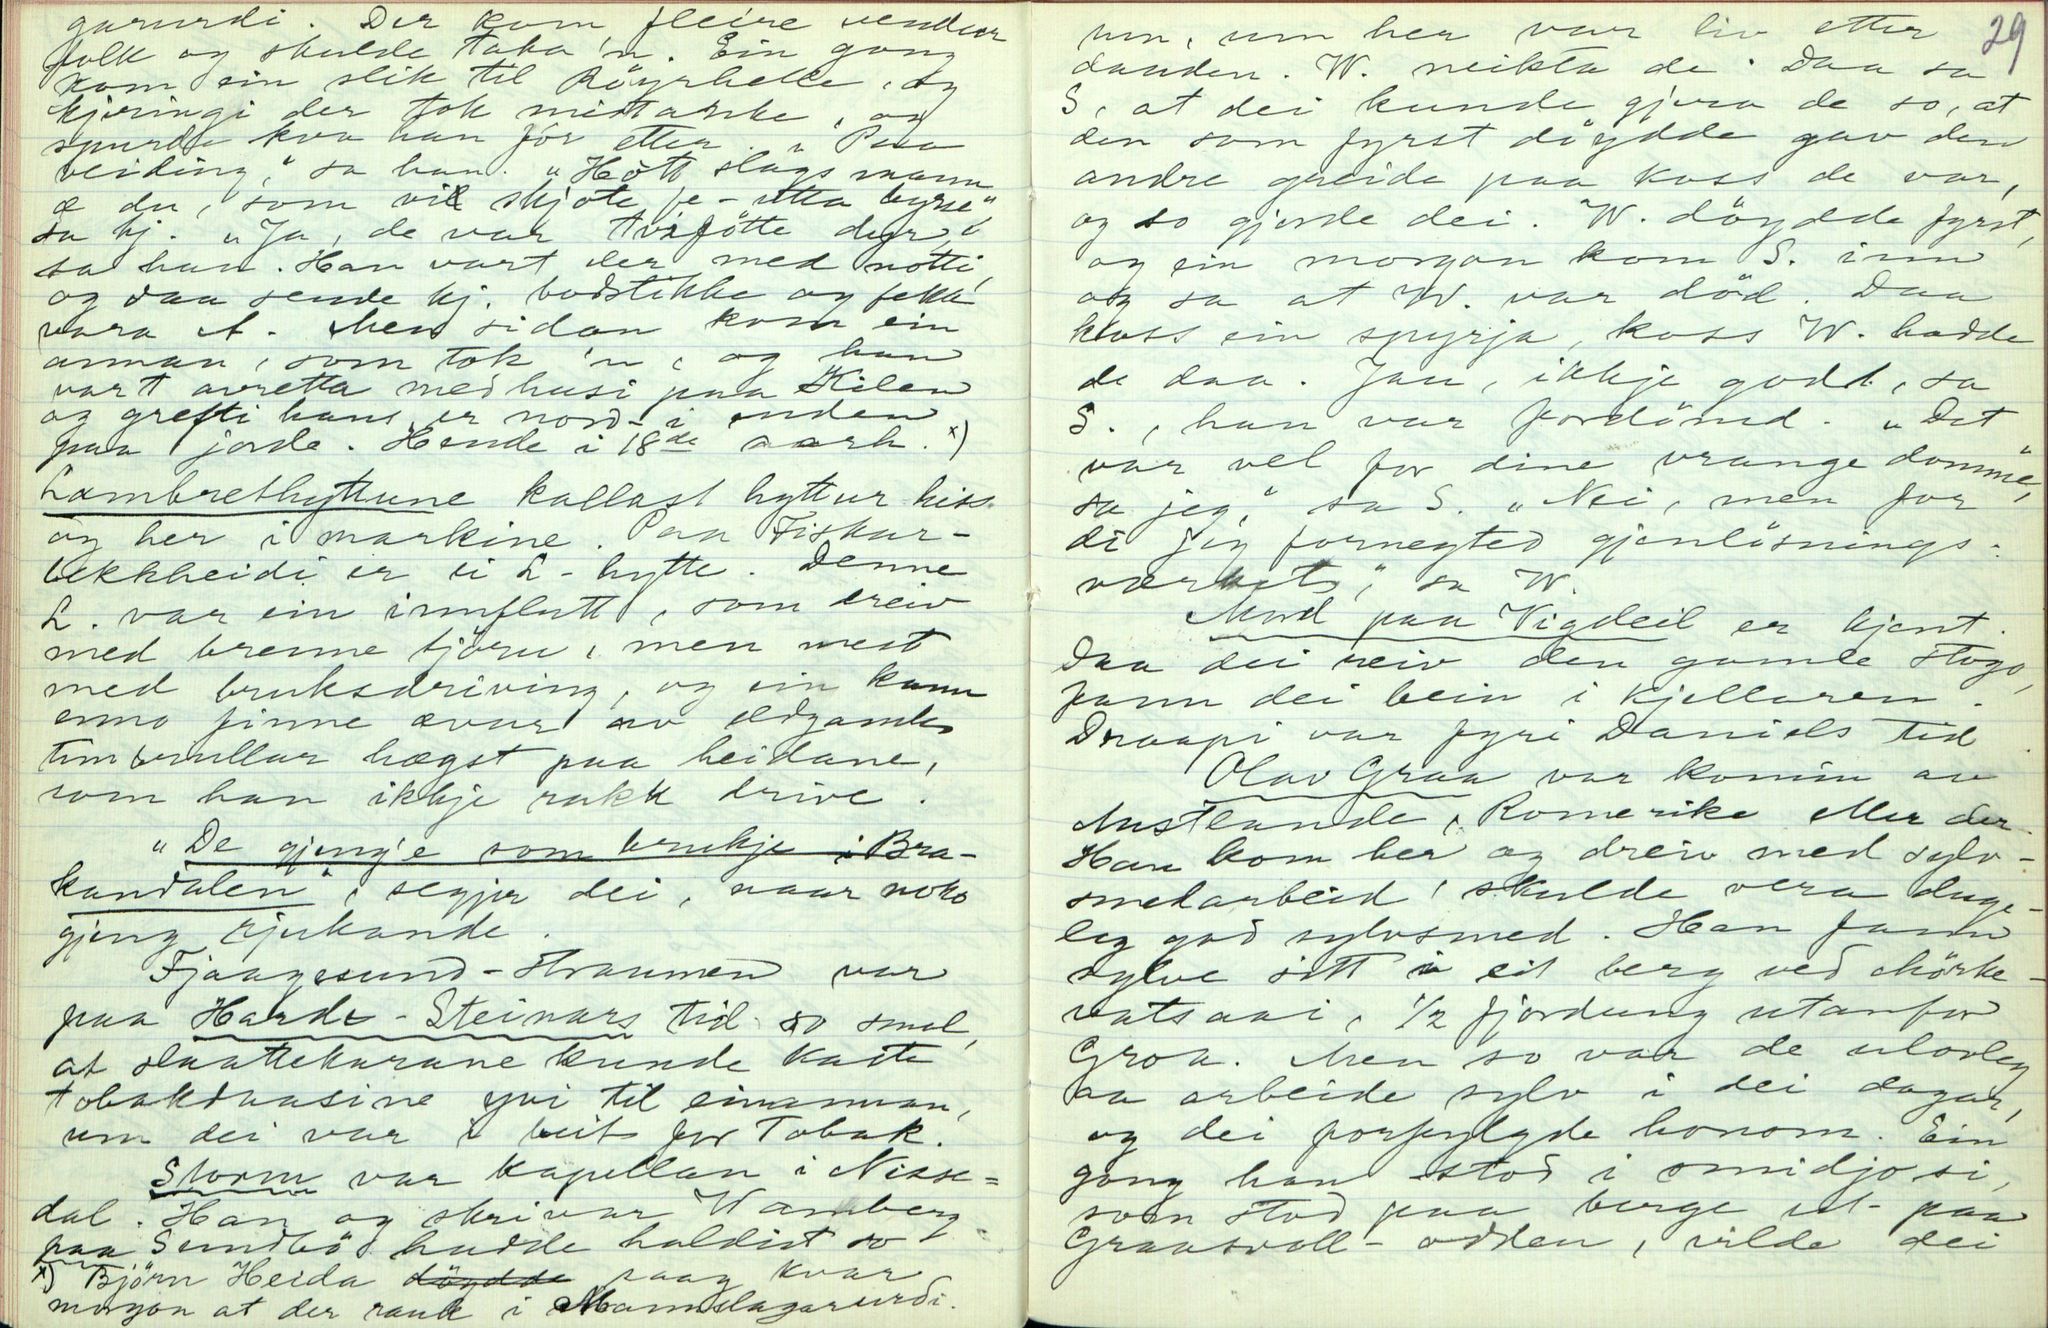 garurdi. Der kom fleire sendur
folk og skulde taka 'n. Ein gong
kom ein slik til Röyrhelle, og
kjeringi der tok mistanke, og
spurde kva han for etter. „Paa
veiding," sa han. „Hött slags mann
æ du, som vil skjote fe-utta byrse"
sa kj. „Ja, de var tvifötte dyr,"
sa han. Han vart der med notti,
og daa sende kj. bodstikke og fekk
vara A. Men sidan kom ein
annan, som tok 'n, og han
vart avretta med husi paa Kilen
og grefti hans er nord i enden
paa jorde. Hende i 18de aarh. x)
Lambrethyttune kallast hyttur hiss
og her i markine. Paa Fiskar-
bekkheidi er ei L-hytte. Denne
L. var ein innflutt, som dreiv
med brenne tjöru, men mest
med bruksdriving, og ein kann
enno finne ævur av eldgamle
timbrullar högst paa heidane,
som han ikkje rakk drive.
„De gjeng'e som brukje i Bra-
kandalen", segjer dei, naar noko
gjeng rjukande.
Fjaagesund-straumen var
paa Harde-Steinars tid so smal,
at slaattekarane kunde kaste
tobakdaasine yvi til einannan,
um dei var i beit for Tobak.
Storm var kapellan i Nisse-
dal. Han og skrivar Wamberg
paa Sundbö hadde haldist so
x) Björn Heida döydde saag kvar
morgon at der rauk i Mannslagarurdi.
29
um, um her var liv etter
dauden. W. neikta de. Daa sa
S, at dei kunde gjera de so, at
den som fyrst döydde gav den
andre greide paa koss de var,
og so gjorde dei. W. döydde fyrst,
og ein morgon kom S. inn
og sa at W. var död. Daa
koss ein spyrja, koss W. hadde
de daa. Jau, ikkje godt, sa
S., han var fordömd. „Det
var vel for dine vrange domme,
sa jeg," sa S. „Nei, men for
di jeg fornegted gjenlösnings-
værket," sa W.
Mord paa Vigdeil er kjent.
Daa dei reiv den gamle stogo,
fann dei bein i kjellaren.
Draapi var fyri Daniels tid.
Olav Graa var komin av
Austlande, Romerike eller der.
Han kom her og dreiv med sylv-
smedarbeid, skulde vera duge-
leg god sylvsmed. Han fann
sylve sitt i eit berg ved Mörke-
vatsaai, 1/2 fjordung utanfor
Groa. Men so var de ulovleg
aa arbeide sylv i dei dagar,
og dei forfylgde honom. Ein
gong han stod i smidjo si,
som stod paa berge ut paa
Graasvoll-odden, vilde dei